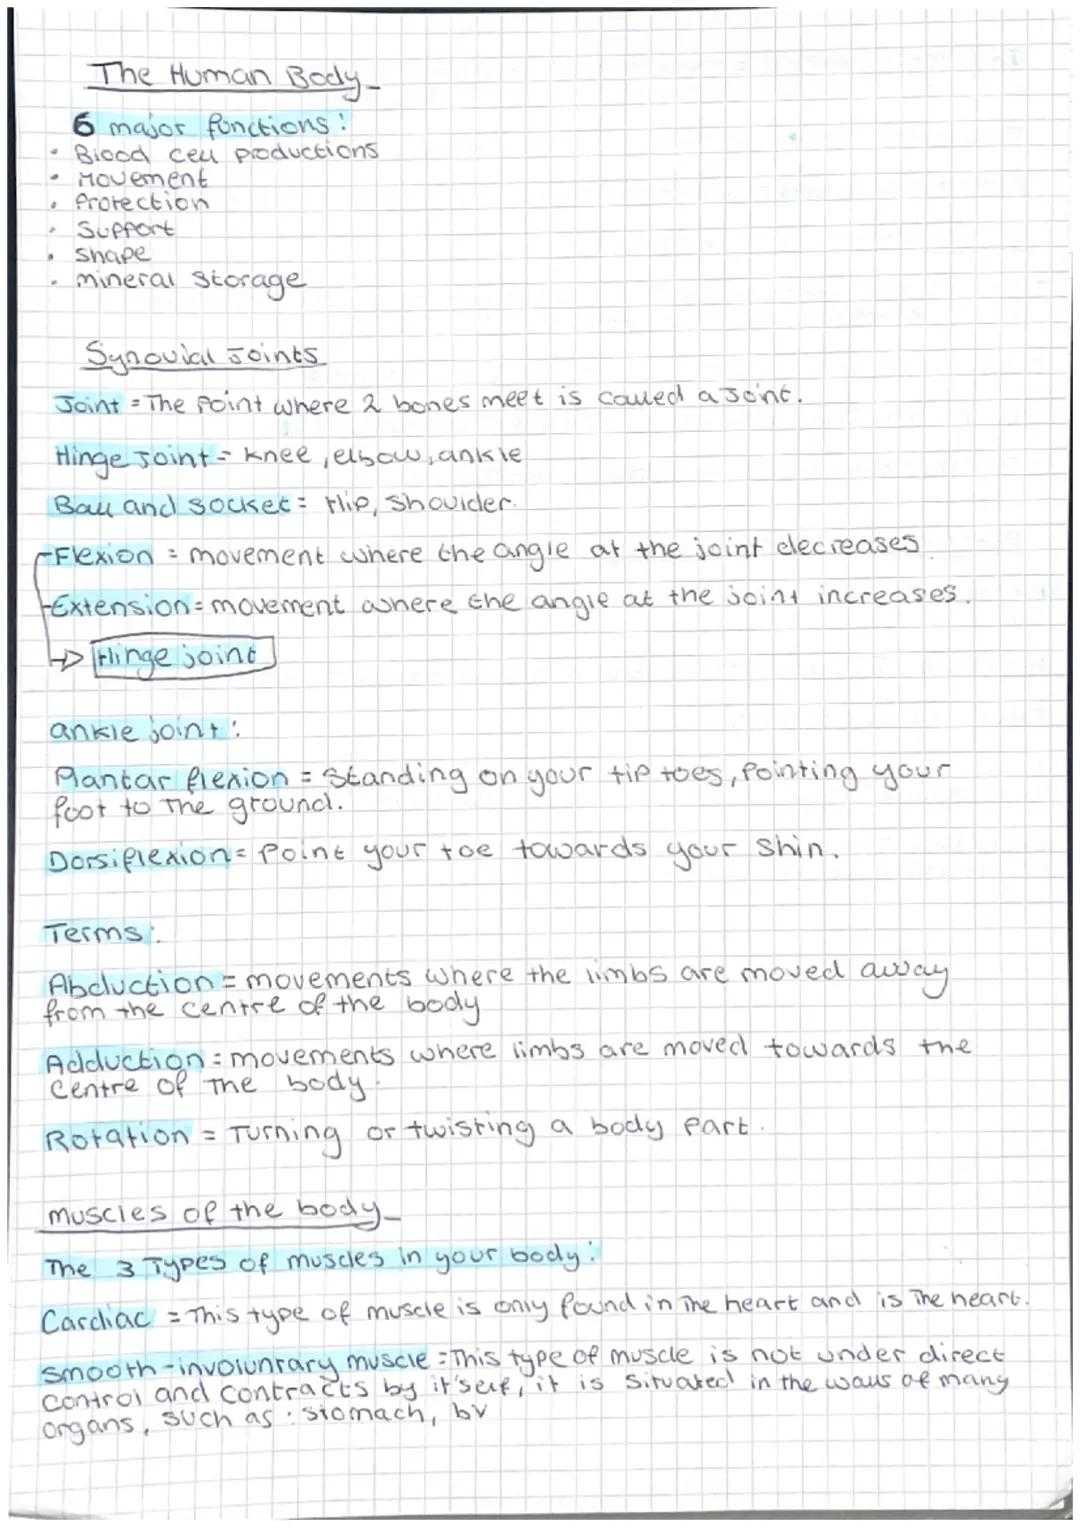 The Human Body
6 major functions:
• Blood cell productions
• Movement
• Protection
• Support
• shape
• mineral storage
Synovial Joints
Joint = The point where 2 bones meet is called a joint.
Hinge joint = knee, elbow, ankle
Ball and socket = Hip, shoulder.
Flexion = movement where the angle at the joint decreases
Extension = movement where the angle at the joint increases.
→ Hinge joint
ankle joint:
Plantar flexion = Standing on your tip toes, Pointing your
foot to the ground.
Dorsiflexion = Point your toe towards your shin.
Terms:
Abduction = movements where the limbs are moved away
from the centre of the body
Adduction = movements where limbs are moved towards the
centre of the body.
Rotation = Turning or twisting a body part.
muscles of the body
The 3 Types of muscles in your body:
Cardiac = This type of muscle is only found in the heart and is the heart.
smooth-involuntary muscle = This type of muscle is not under direct
control and contracts by it'self, it is situated in the walls of many
organs, such as: stomach, bv